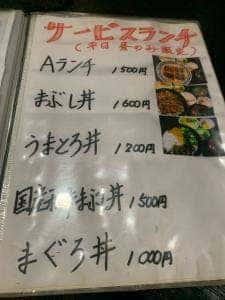 サービスランチ
(平日 昼のみ限定)
Aランチ 1500円
まぶし丼 1600円
うまとろ丼 1200円
国産 まぶし丼 1500円
まぐろ丼 1000円